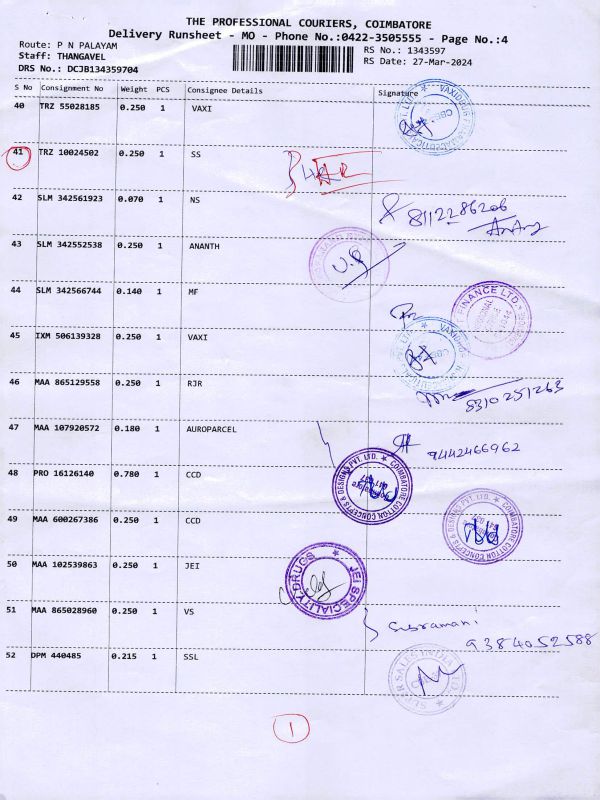 THE PROFESSIONAL COURIERS, COIMBATORE
Delivery Runsheet - MO - Phone No.:0422-3505555 - Page No.:4
Route: P N PALAYAM
RS No.: 1343597
Staff: THANGAVEL
RS Date: 27-Mar-2024
DRS No.: DCJB134359704
S No Consignment No Weight PCS Consignee Details Signature
40 TRZ 55028185 0.250 1 VAXI
41 TRZ 10024502 0.250 1 SS
42 SLM 342561923 0.070 1 NS
8112286206
43 SLM 342552538 0.250 1 ANANTH
44 SLM 342566744 0.140 1 MF
FINANCE LTD.
45 IXM 506139328 0.250 1 VAXI
46 MAA 865129558 0.250 1 RJR
8310251263
47 MAA 107920572 0.180 1 AUROPARCEL
9442466962
48 PRO 16126140 0.780 1 CCD
COIMBATORE COTTON CONCEPTS & DESIGNS PVT. LTD.
49 MAA 600267386 0.250 1 CCD
COIMBATORE COTTON CONCEPTS & DESIGNS PVT. LTD.
50 MAA 102539863 0.250 1 JEI
JEI SPECIALITY DRUGS
51 MAA 865028960 0.250 1 VS
Subramani
9384052588
52 DPM 440485 0.215 1 SSL
SUPER SALES INDIA LTD.
1